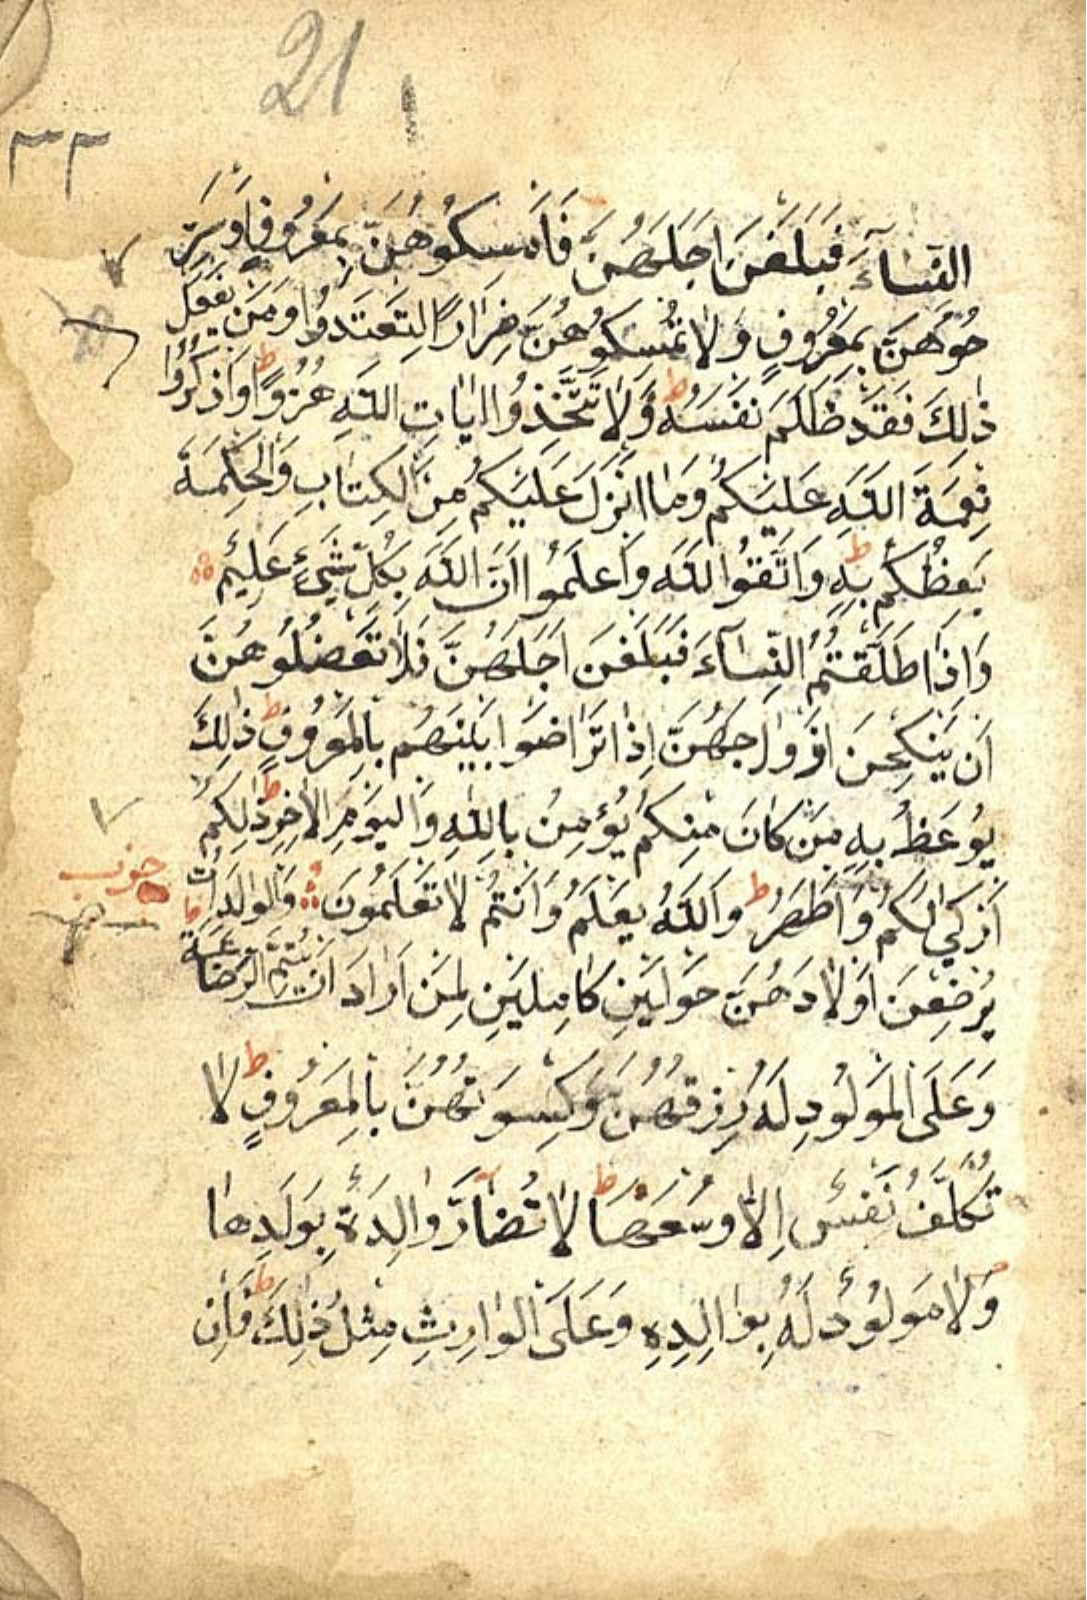 21
٣٣
النِّسَآءَ فَبَلَغْنَ اَجَلَهُنَّ فَاَمْسِكُوهُنَّ بِمَعْرُوفٍ اَوْ سَرِّ
حُوهُنَّ بِمَعْرُوفٍ وَلَا تُمْسِكُوهُنَّ ضِرَارًا لِتَعْتَدُوا وَمَنْ يَفْعَلْ
ذٰلِكَ فَقَدْ ظَلَمَ نَفْسَهُ ط وَلَا تَتَّخِذُوا اٰيَاتِ اللّٰهِ هُزُوًا ط وَاذْكُرُوا
نِعْمَةَ اللّٰهِ عَلَيْكُمْ وَمَا اَنْزَلَ عَلَيْكُمْ مِنَ الْكِتَابِ وَالْحِكْمَةِ
يَعِظُكُمْ بِهِ ط وَاتَّقُوا اللّٰهَ وَاعْلَمُوا اَنَّ اللّٰهَ بِكُلِّ شَيْءٍ عَلِيمٌ
وَاِذَا طَلَّقْتُمُ النِّسَآءَ فَبَلَغْنَ اَجَلَهُنَّ فَلَا تَعْضُلُوهُنَّ
اَنْ يَنْكِحْنَ اَزْوَاجَهُنَّ اِذَا تَرَاضَوْا بَيْنَهُمْ بِالْمَعْرُوفِ ط ذٰلِكَ
يُوعَظُ بِهِ مَنْ كَانَ مِنْكُمْ يُؤْمِنُ بِاللّٰهِ وَالْيَوْمِ الْاٰخِرِ ط ذٰلِكُمْ
اَزْكٰى لَكُمْ وَاَطْهَرُ ط وَاللّٰهُ يَعْلَمُ وَاَنْتُمْ لَا تَعْلَمُونَ وَالْوَالِدَاتُ
حزب
يُرْضِعْنَ اَوْلَادَهُنَّ حَوْلَيْنِ كَامِلَيْنِ لِمَنْ اَرَادَ اَنْ يُتِمَّ الرَّضَاعَةَ
وَعَلَى الْمَوْلُودِ لَهُ رِزْقُهُنَّ وَكِسْوَتُهُنَّ بِالْمَعْرُوفِ ط لَا
تُكَلَّفُ نَفْسٌ اِلَّا وُسْعَهَا ط لَا تُضَآرَّ وَالِدَةٌ بِوَلَدِهَا
وَلَا مَوْلُودٌ لَهُ بِوَالِدِهِ وَعَلَى الْوَارِثِ مِثْلُ ذٰلِكَ ط فَاِنْ